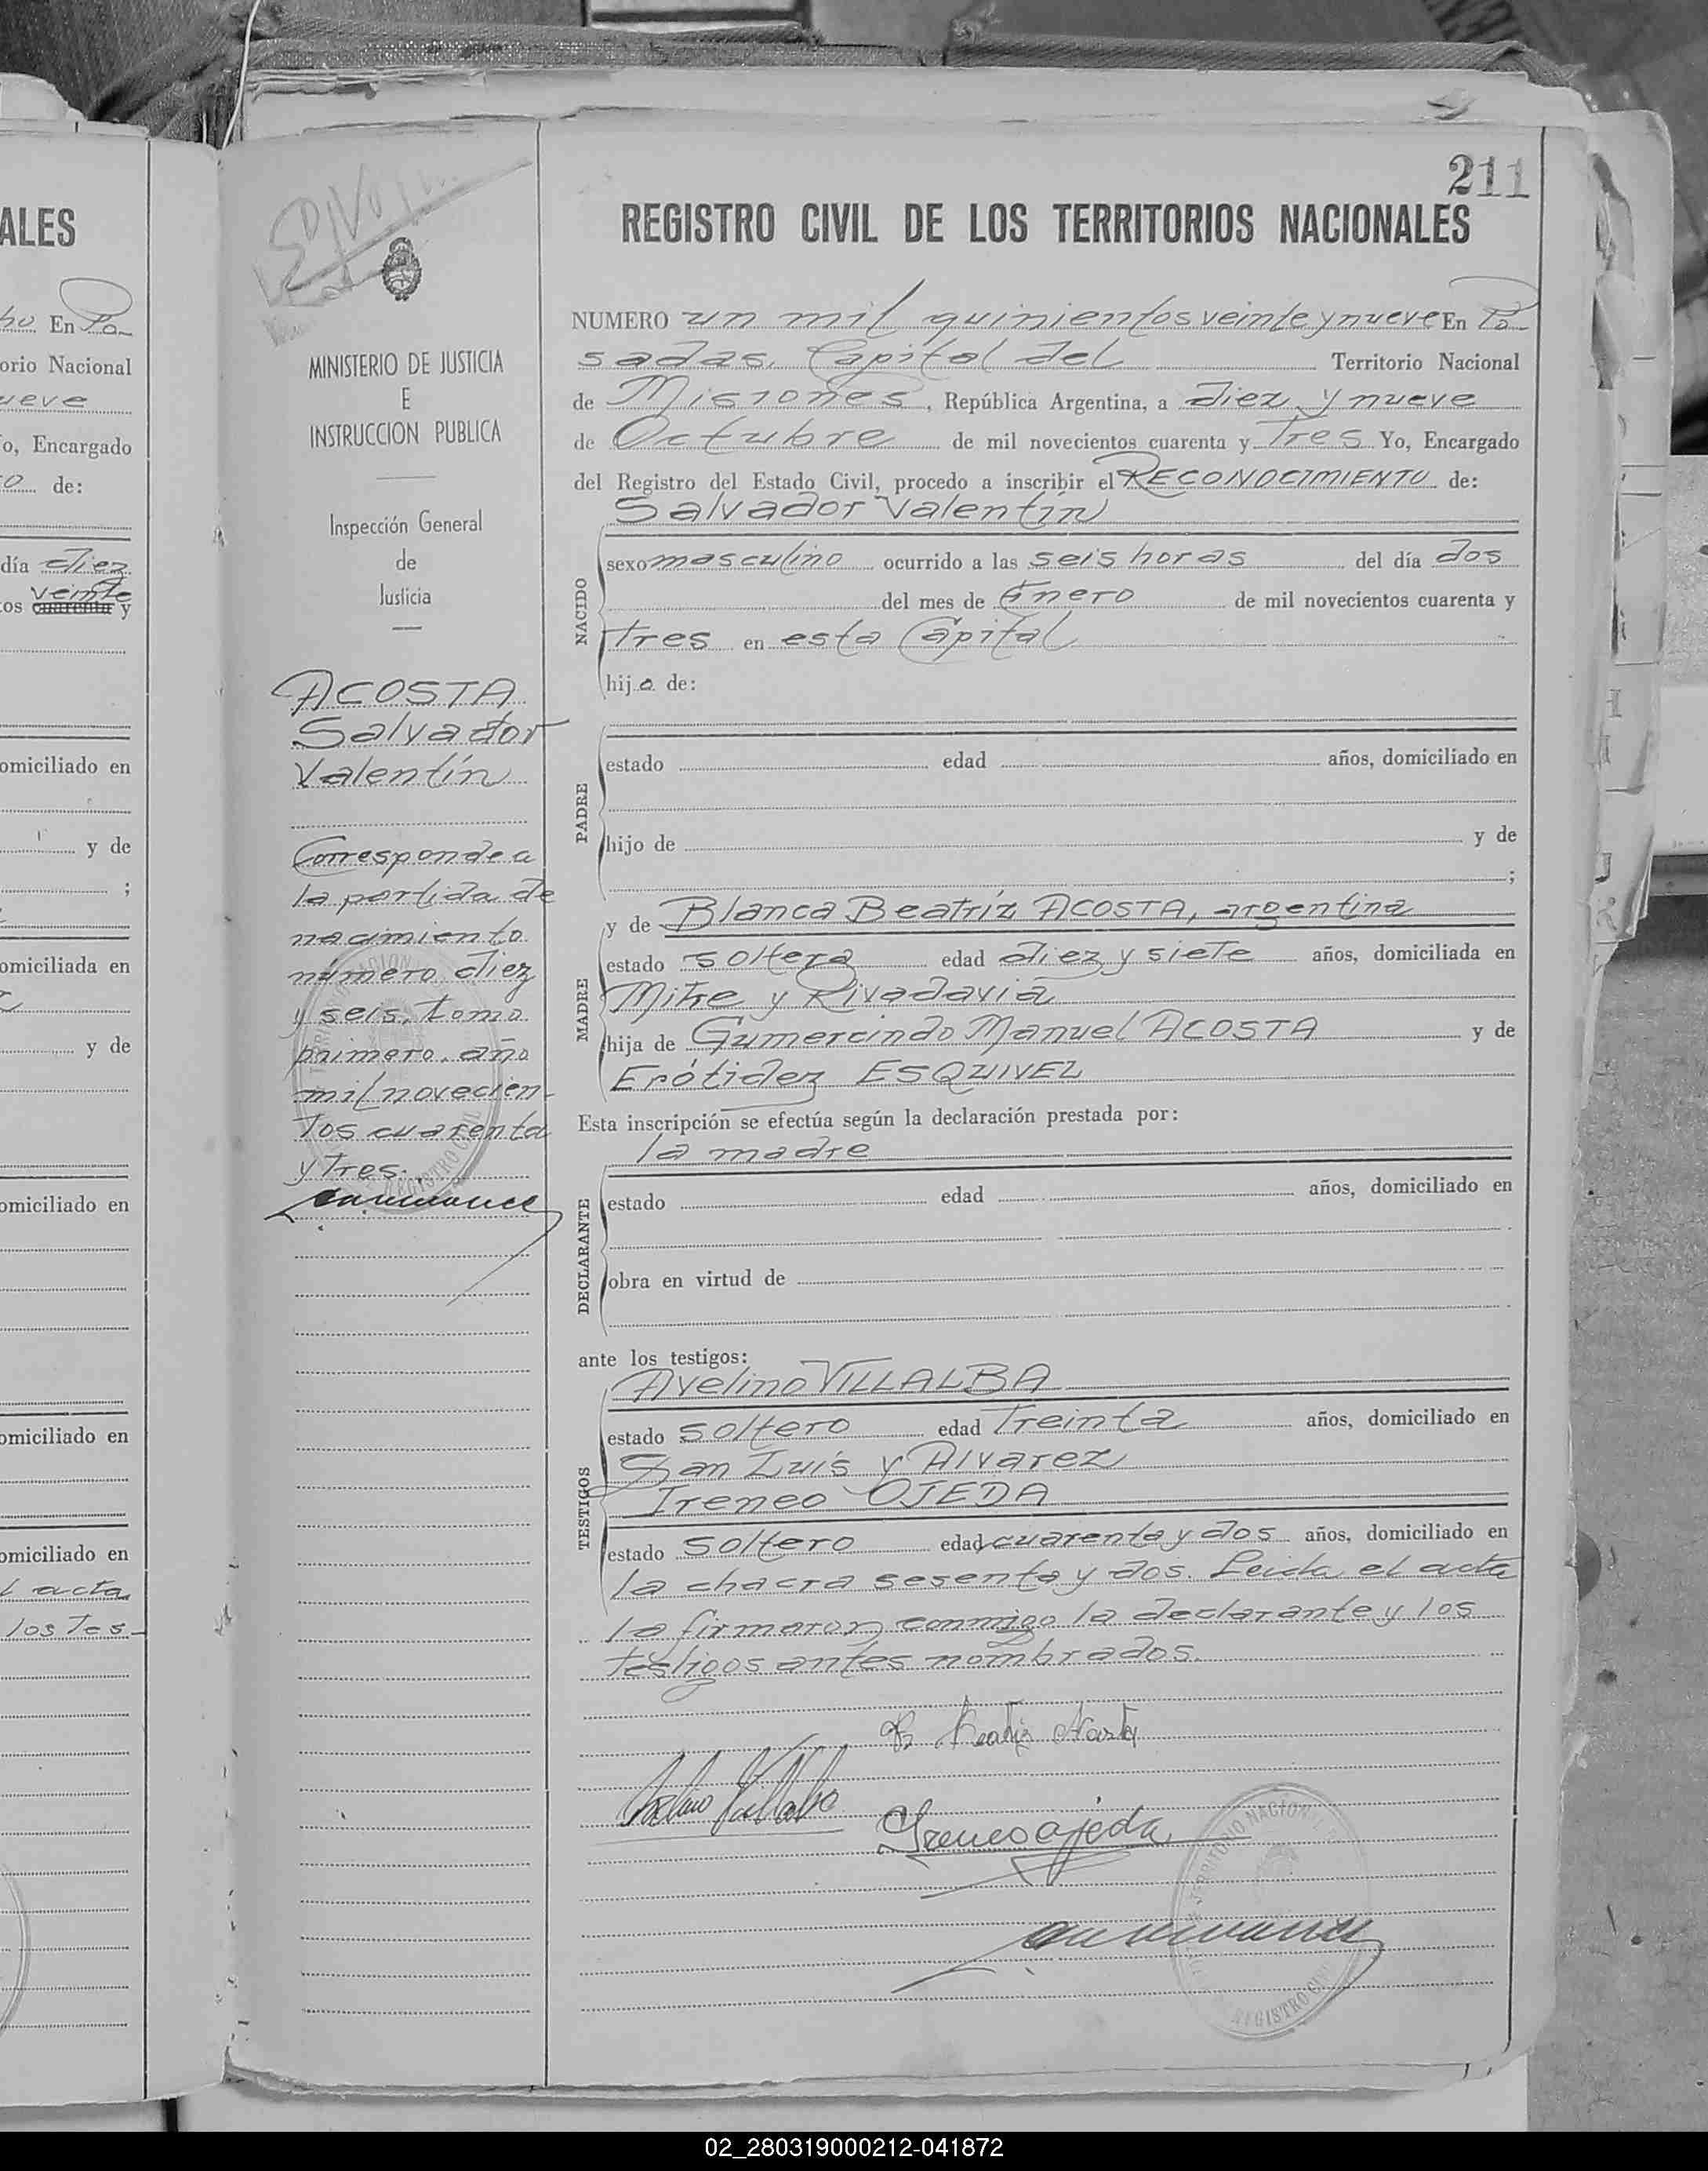 ALES
ho En Po-
orio Nacional
ueve
o, Encargado
o de:
día diez
veinte
tos cuarenta y
omiciliado en
y de
;
omiciliada en
y de
omiciliado en
omiciliado en
omiciliado en
l acta
los Tes-
211
MINISTERIO DE JUSTICIA
E
INSTRUCCION PUBLICA
Inspección General
de
Justicia
ACOSTA
Salvador
Valentín
Corresponde a
la partida de
nacimiento
número diez
y seis, tomo
primero, año
mil novecien-
tos cuarenta
y Tres.
REGISTRO CIVIL DE LOS TERRITORIOS NACIONALES
NUMERO un mil quinientos veinte y nueve En Po-
sadas, Capital del Territorio Nacional
de Misiones, República Argentina, a diez y nueve
de Octubre de mil novecientos cuarenta y Tres Yo, Encargado
del Registro del Estado Civil, procedo a inscribir el RECONOCIMIENTO de:
Salvador Valentín
NACIDO
sexo masculino ocurrido a las seis horas del día dos
del mes de Enero de mil novecientos cuarenta y
Tres en esta Capital
hijo de:
PADRE
estado edad años, domiciliado en
hijo de y de
;
y de Blanca Beatríz ACOSTA, argentina
MADRE
estado soltera edad diez y siete años, domiciliada en
Mitre y Rivadavia
hija de Gumercindo Manuel ACOSTA y de
Erótidez ESQUIVEL
Esta inscripción se efectúa según la declaración prestada por:
la madre
DECLARANTE
estado edad años, domiciliado en
obra en virtud de
ante los testigos:
Avelino VILLALBA
TESTIGOS
estado soltero edad Treinta años, domiciliado en
San Luís y Alvarez
Ireneo OJEDA
estado soltero edad cuarenta y dos años, domiciliado en
la chacra sesenta y dos. Leida el acta
la firmaron conmigo la declarante y los
testigos antes nombrados.
B. Beatriz Acosta
Avelino Villalba
Ireneo Ojeda
TERRITORIO NACIONAL
REGISTRO CIVIL
02_280319000212-041872